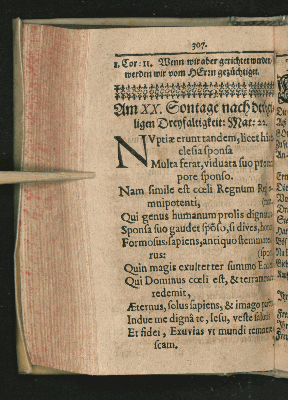 307.
1. Cor: 11. Wenn wir aber gerichtet werden
werden wir vom HErrn gezüchtiget.
Am XX. Sontage nach der
ligen Dreyfaltigkeit: Mat: 22.
NVptiæ erunt tandem, licet hîc
clesia sponsa
Multa ferat, viduata suo
pore sponso.
Nam simile est cœli Regnum
mnipotenti,
Qui genus humanum prolis
Sponsa suo gaudet spõso, si dives,
Formosus, sapiens, antiquo
rus:
Quin magis exultetter summo
Qui Dominus cœli est, & terram
redemit,
Æternus, solus sapiens, & imago
Indue me dignâ te, Iesu, veste
Et fidei, Exuvias vt mundi
scam.